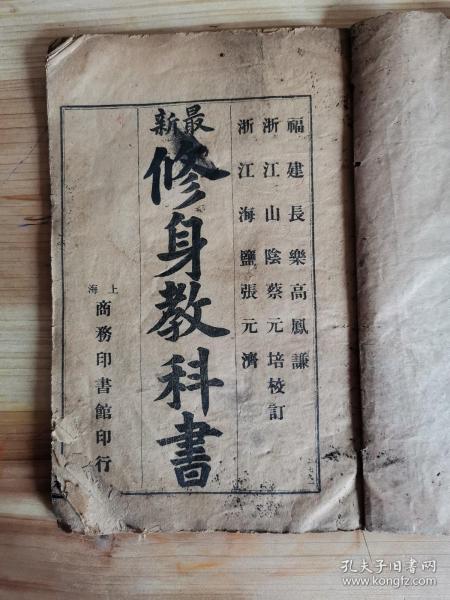 福建長樂高鳳謙
浙江山陰蔡元培校訂
浙江海鹽張元濟
最新
修身教科書
上海
商務印書館印行
孔夫子旧书网
www.kongfz.com